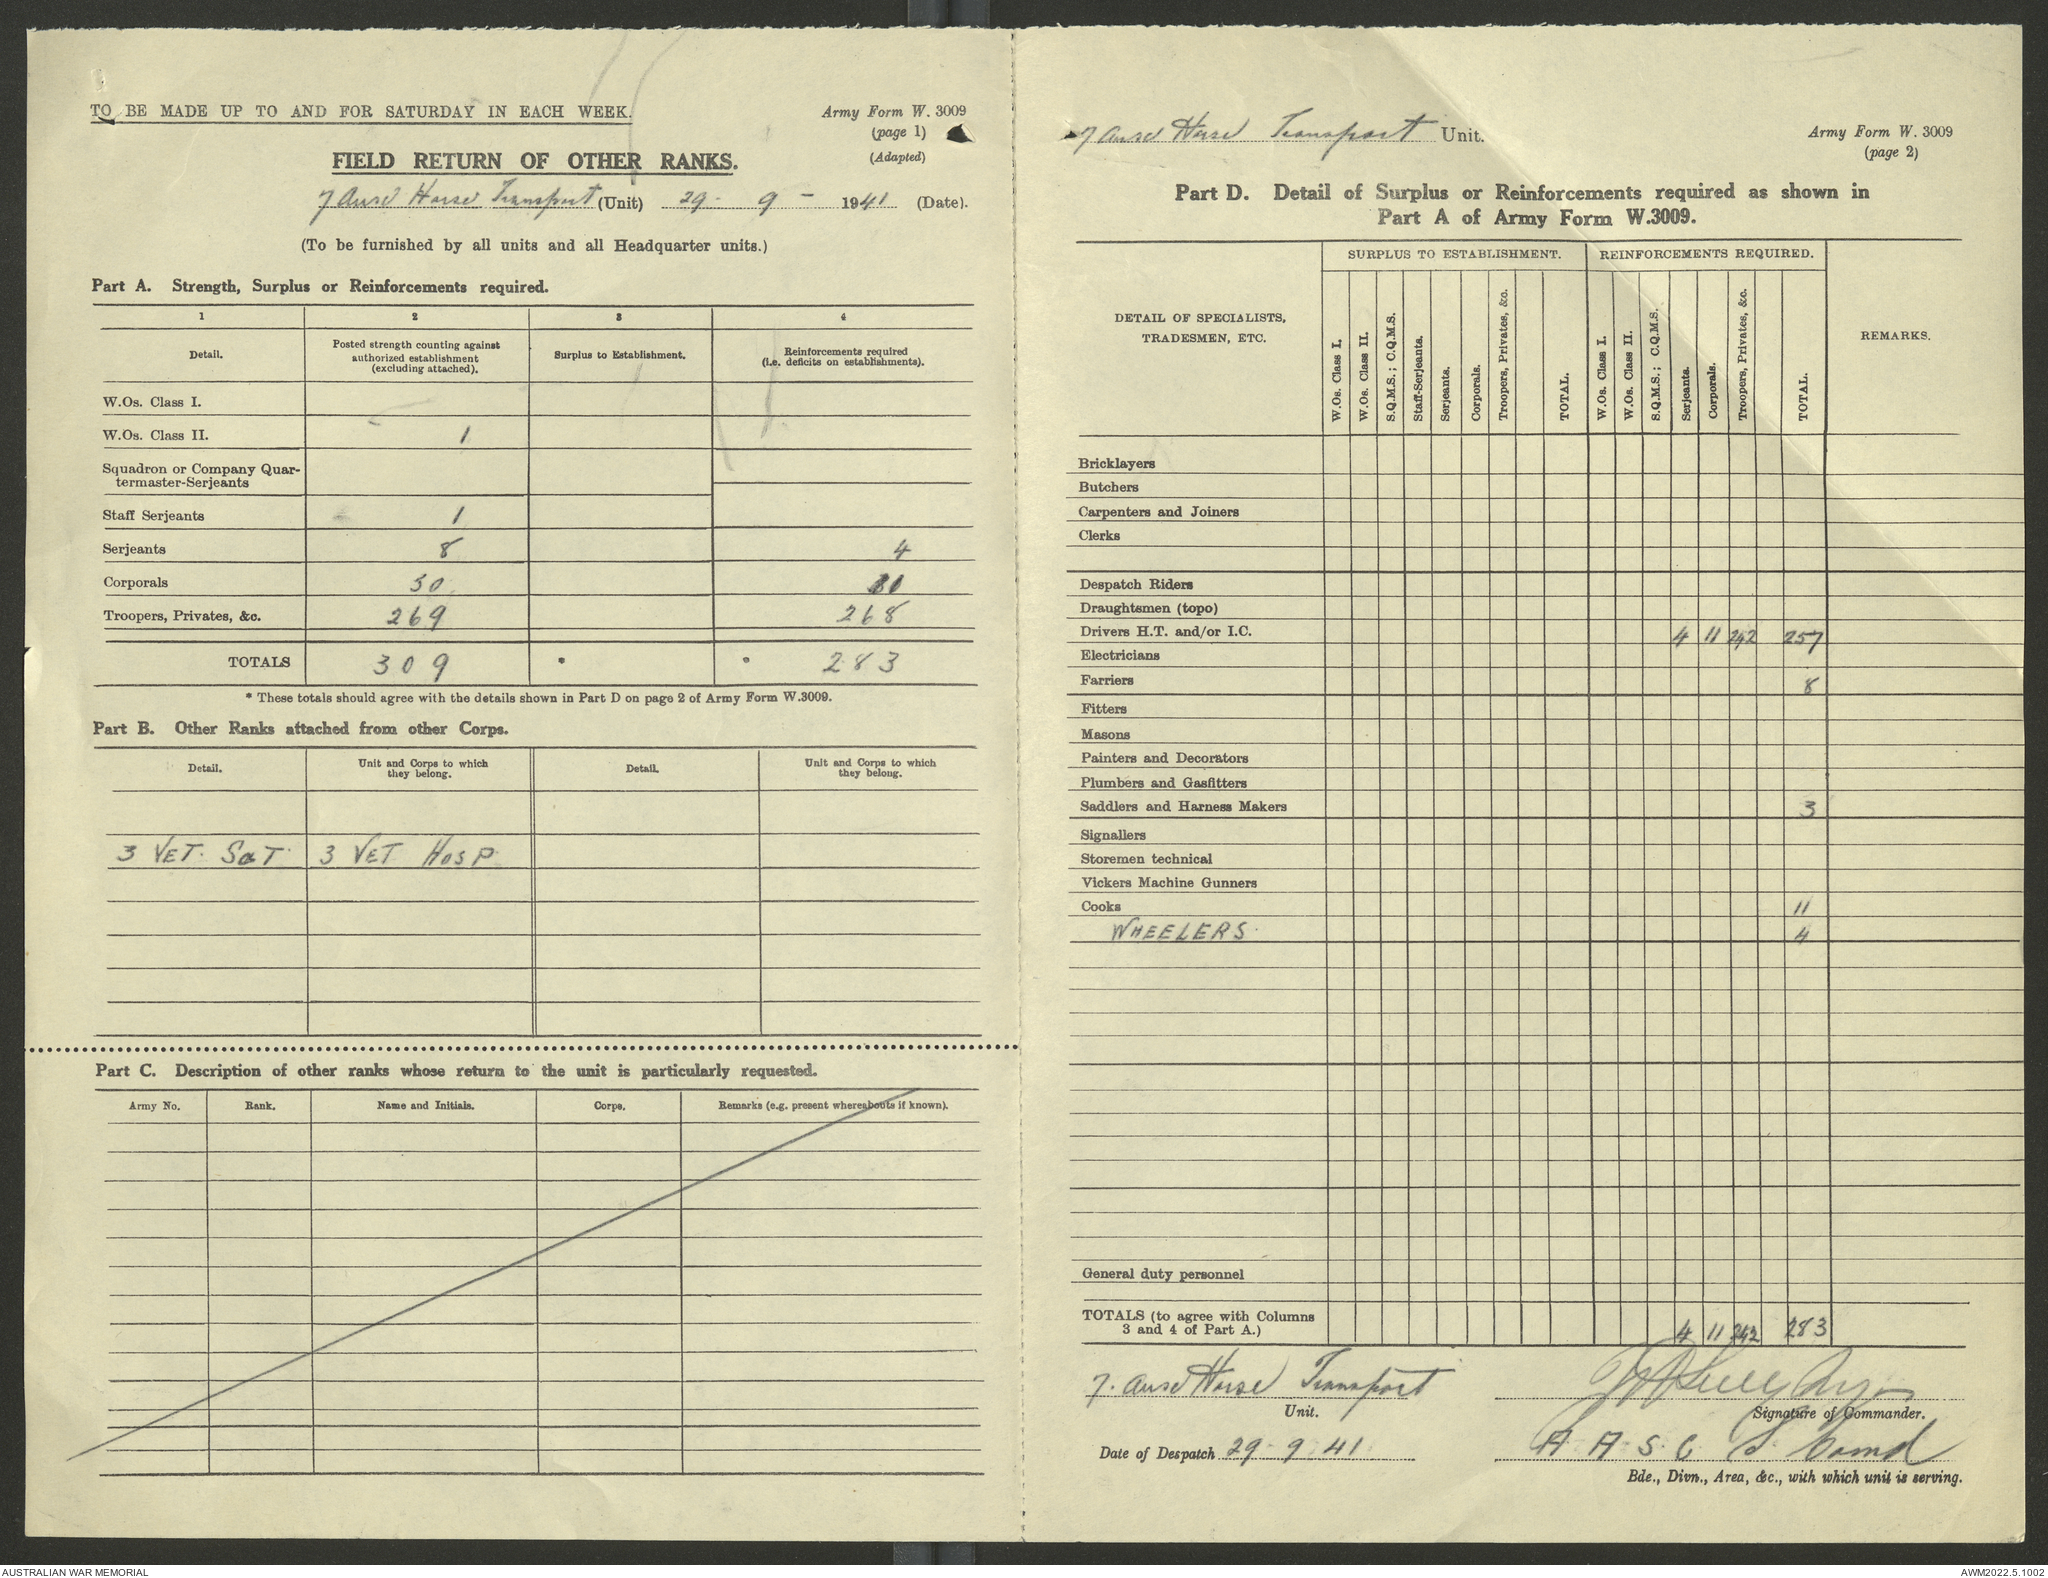 TO BE MADE UP TO AND FOR SATURDAY IN EACH WEEK.
Army Form W. 3009
(page 1)
(Adapted)
FIELD RETURN OF OTHER RANKS.
7 Aust Horse Transport (Unit) 29 - 9 - 1941 (Date).
(To be furnished by all units and all Headquarter units.)
Part A. Strength, Surplus or Reinforcements required.
1 2 3 4
Detail. Posted strength counting against authorized establishment (excluding attached). Surplus to Establishment. Reinforcements required (i.e. deficits on establishments).
W.Os. Class I.
W.Os. Class II. 1
Squadron or Company Quar-
termaster-Serjeants
Staff Serjeants 1
Serjeants 8 4
Corporals 30
Troopers, Privates, &c. 269 268
TOTALS 309 * * 283
* These totals should agree with the details shown in Part D on page 2 of Army Form W.3009.
Part B. Other Ranks attached from other Corps.
Detail. Unit and Corps to which they belong. Detail. Unit and Corps to which they belong.
3 VET. SGT 3 VET HOSP
Part C. Description of other ranks whose return to the unit is particularly requested.
Army No. Rank. Name and Initials. Corps. Remarks (e.g. present whereabouts if known).
7 Aust Horse Transport Unit.
Army Form W. 3009
(page 2)
Part D. Detail of Surplus or Reinforcements required as shown in
Part A of Army Form W.3009.
SURPLUS TO ESTABLISHMENT. REINFORCEMENTS REQUIRED.
DETAIL OF SPECIALISTS,
TRADESMEN, ETC.
W.Os. Class I. W.Os. Class II. S.Q.M.S.; C.Q.M.S. Staff-Serjeants. Serjeants. Corporals. Troopers, Privates, &c. TOTAL. W.Os. Class I. W.Os. Class II. S.Q.M.S.; C.Q.M.S. Serjeants. Corporals. Troopers, Privates, &c. TOTAL. REMARKS.
Bricklayers
Butchers
Carpenters and Joiners
Clerks
Despatch Riders
Draughtsmen (topo)
Drivers H.T. and/or I.C. 4 11 242 257
Electricians
Farriers 8
Fitters
Masons
Painters and Decorators
Plumbers and Gasfitters
Saddlers and Harness Makers 3
Signallers
Storemen technical
Vickers Machine Gunners
Cooks 11
WHEELERS 4
General duty personnel
TOTALS (to agree with Columns
3 and 4 of Part A.) 4 11 242 283
7. Aust Horse Transport
Unit. Signature of Commander.
Date of Despatch 29 9 41 A A S C
Bde., Divn., Area, &c., with which unit is serving.
AUSTRALIAN WAR MEMORIAL
AWM2022.5.1002